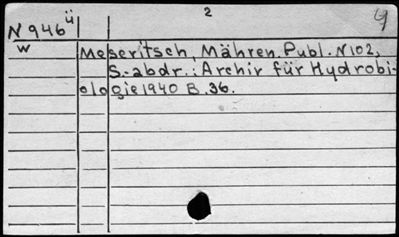 2
N 946ü
W Meseritsch, Mähren. Publ. N 102,
S.-abdr.: Archiv für Hydrobi-
ologie 1940 B. 36.